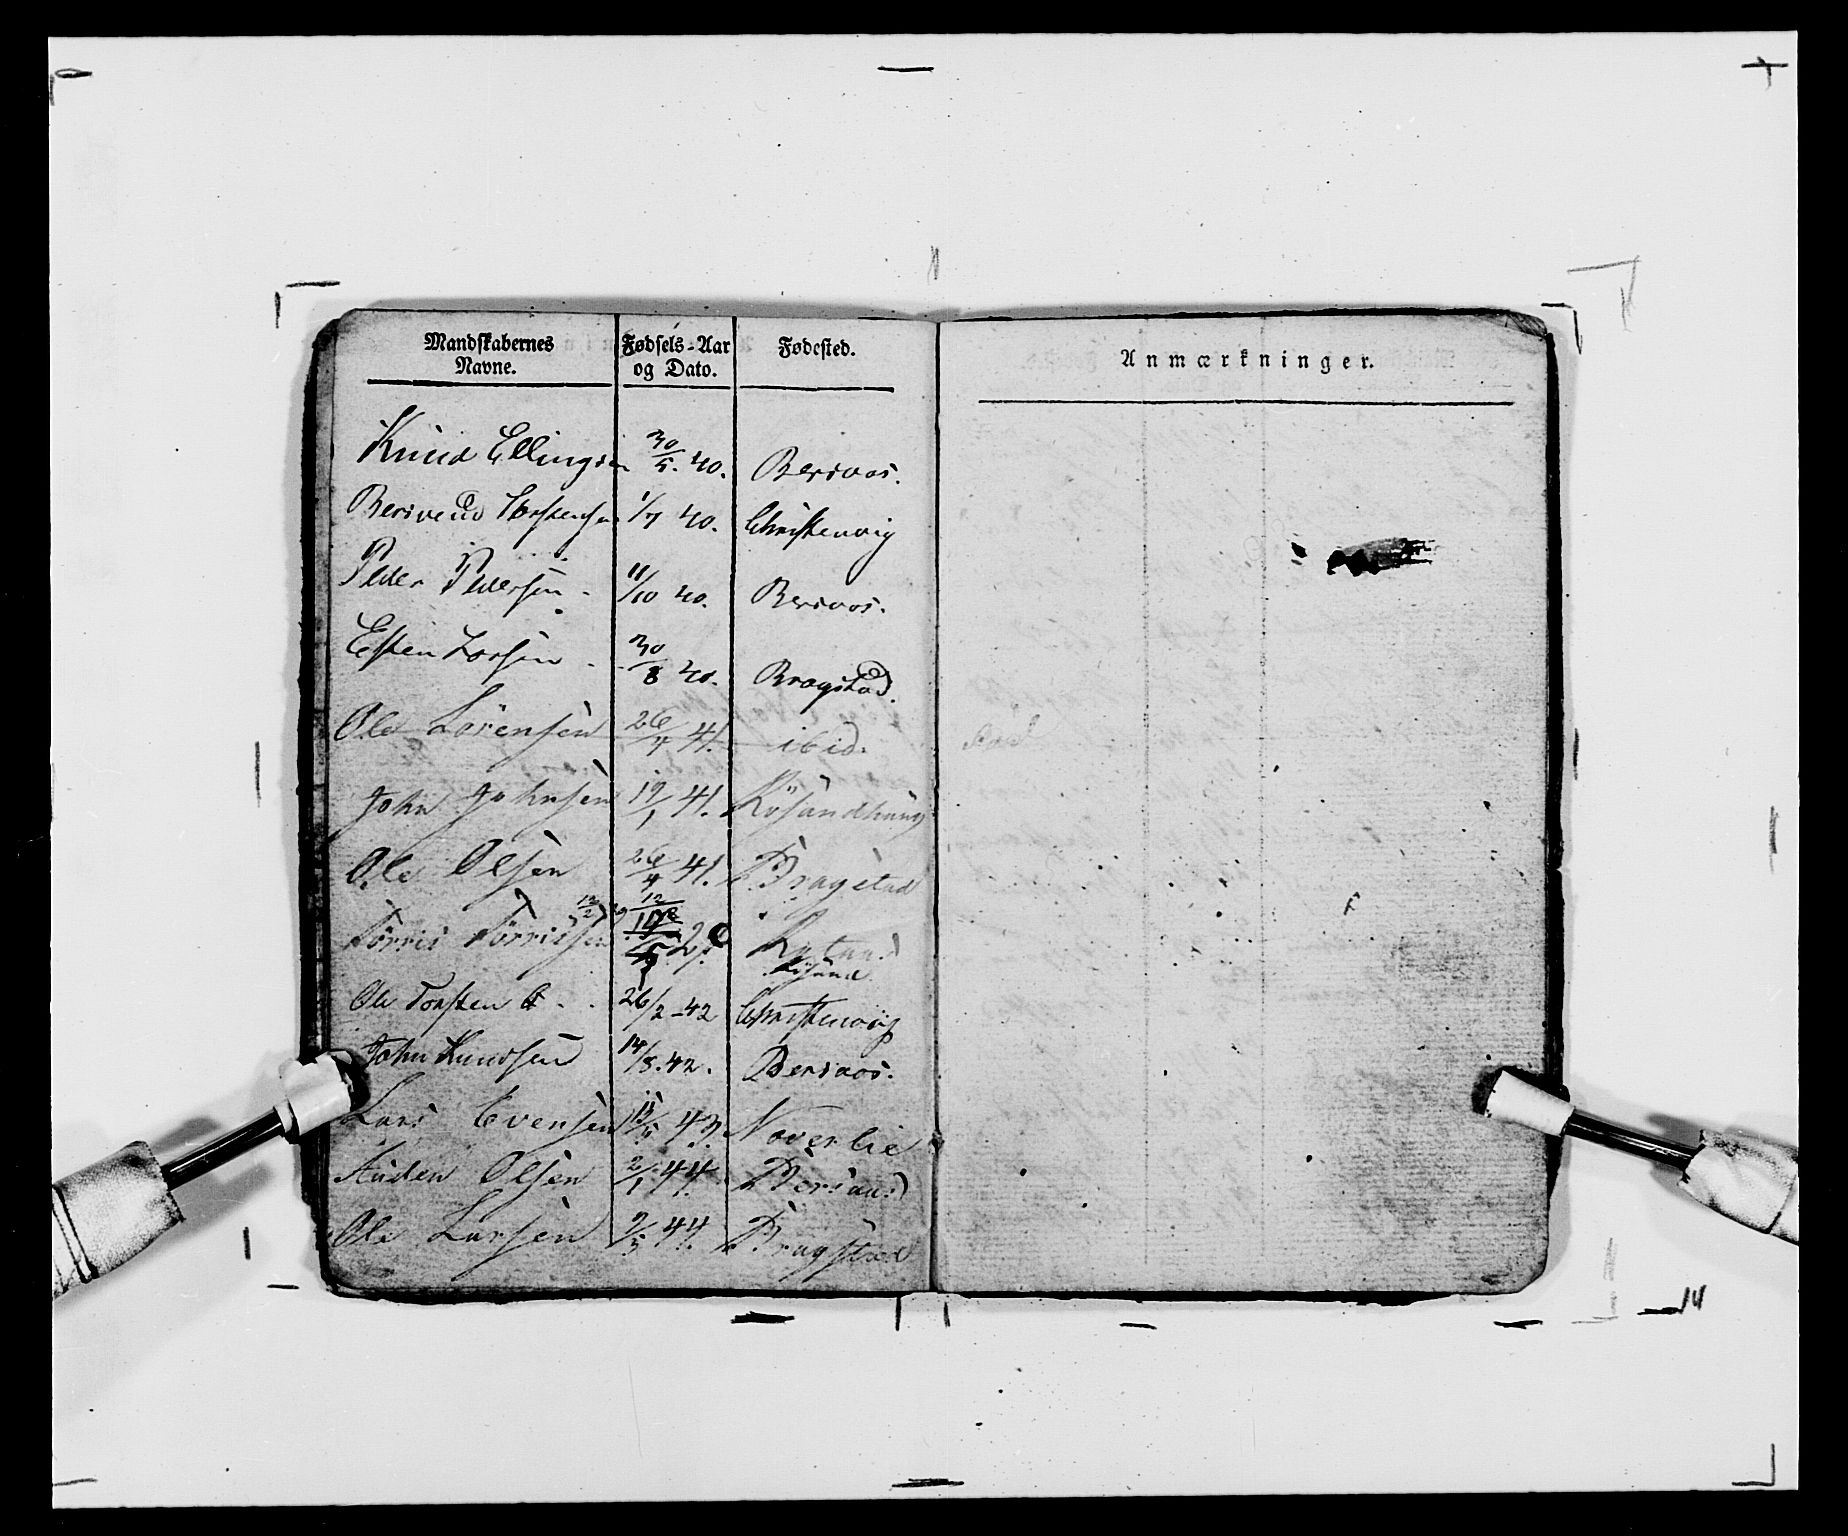 Mandskabernes Navne. Fødsels-Aar og Dato. Fødested.
Anmærkninger.
Knud Ellingsen 30/5. 40. Bersaas.
Torstensen 1/7 40. Christenvig
Peder Pedersen - 11/10 40. Bersaas.
Esten Larsen - 30/8 40. Bragstad.
Ole Lorensen 26/7 41. ibid.
John Johnsen 19/1 41.
Ole Olsen 26/4 41. Bragstad
Törris Törrissen
Ole Torsten 26/2 - 42 Christenvig
John Knudsen 14/8. 42. Bersaas.
Lars Evensen 43. Noverlie
Auden Olsen 2/1 44.
Ole Larsen 9/3 44. Bragstad
14